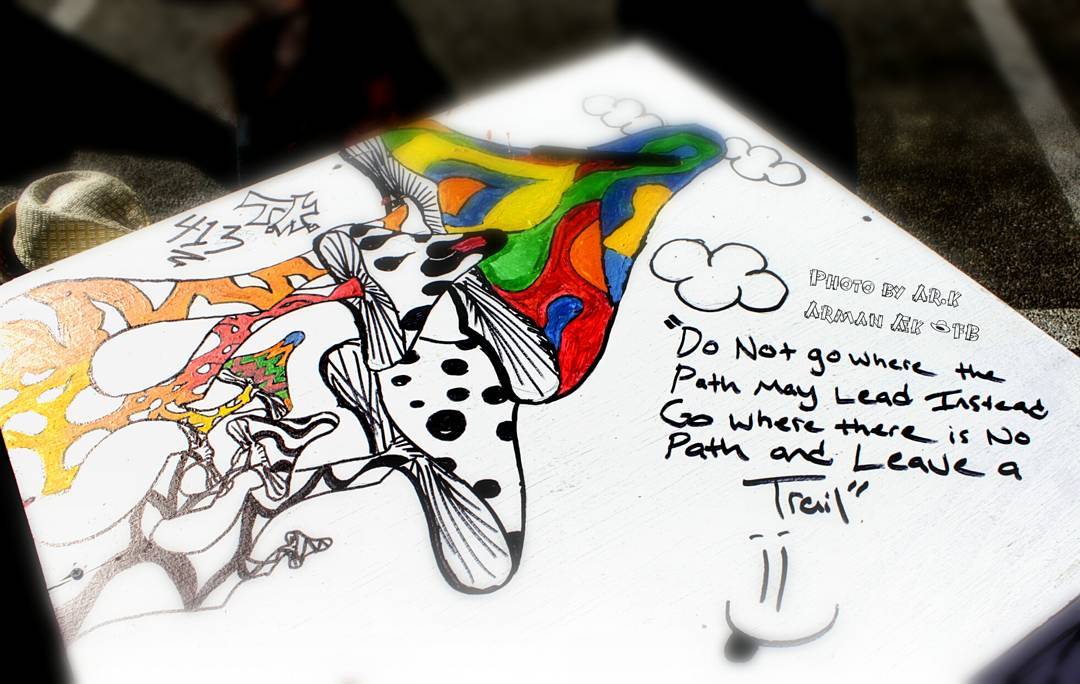 413
PHOTO BY AR.K
"Do Not go where the
Path May Lead Instead
Go where there is No
Path and Leave a
Trail"